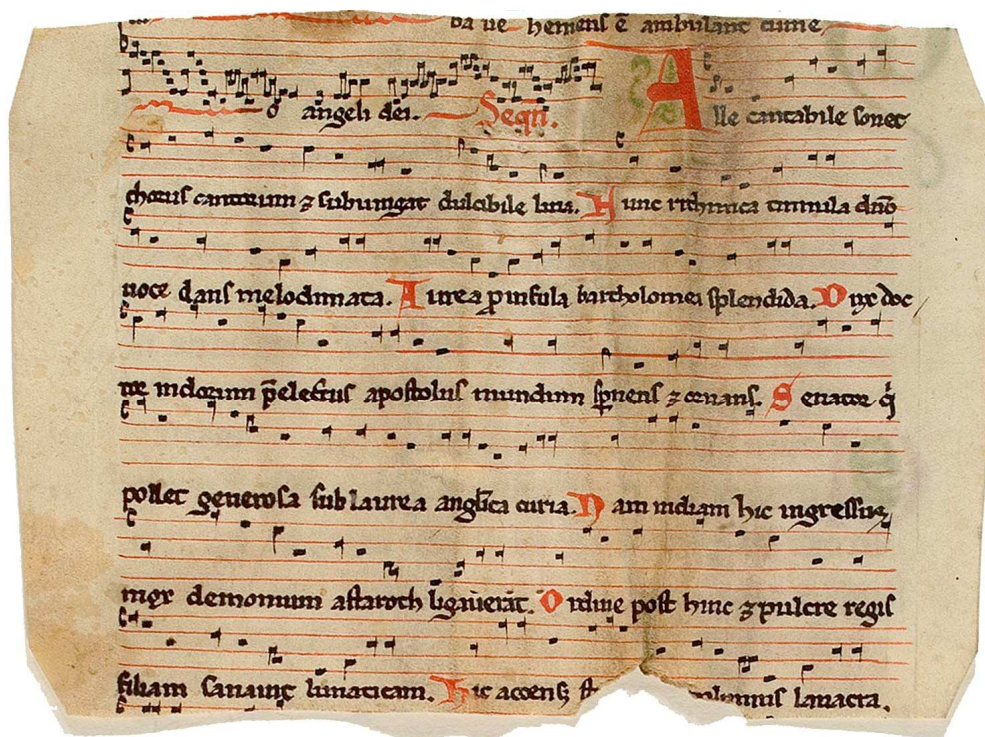 ba ue hemens ē ambulant cume
o angeli dei. Seqū. Alle cantabile sonet
chorus cantorum ⁊ subiungat dulcibile luia. Hunc rithmica tinnula duo
uoce dans melodimata. Aurea p insula bartholomei splendida. Dux doc
tor indorum p̄electus apostolus mundum spnens ⁊ ornans. Senator q̇
pollet generosa sub laurea anglica curia. Nam indiam hic ingressus
mox demonium astaroth ligauerat. Ordine post hinc ⁊ pulcre regis
filiam sanauit lunaticam. Hic lauacra.